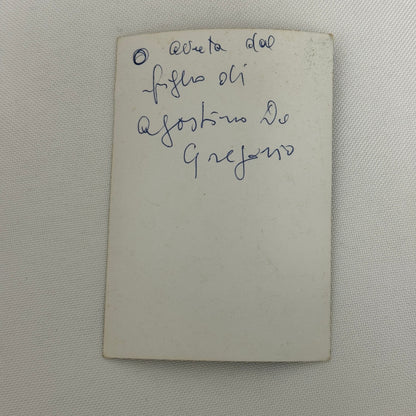 O avuta dal
figlio di
Agostino De
Gregorio